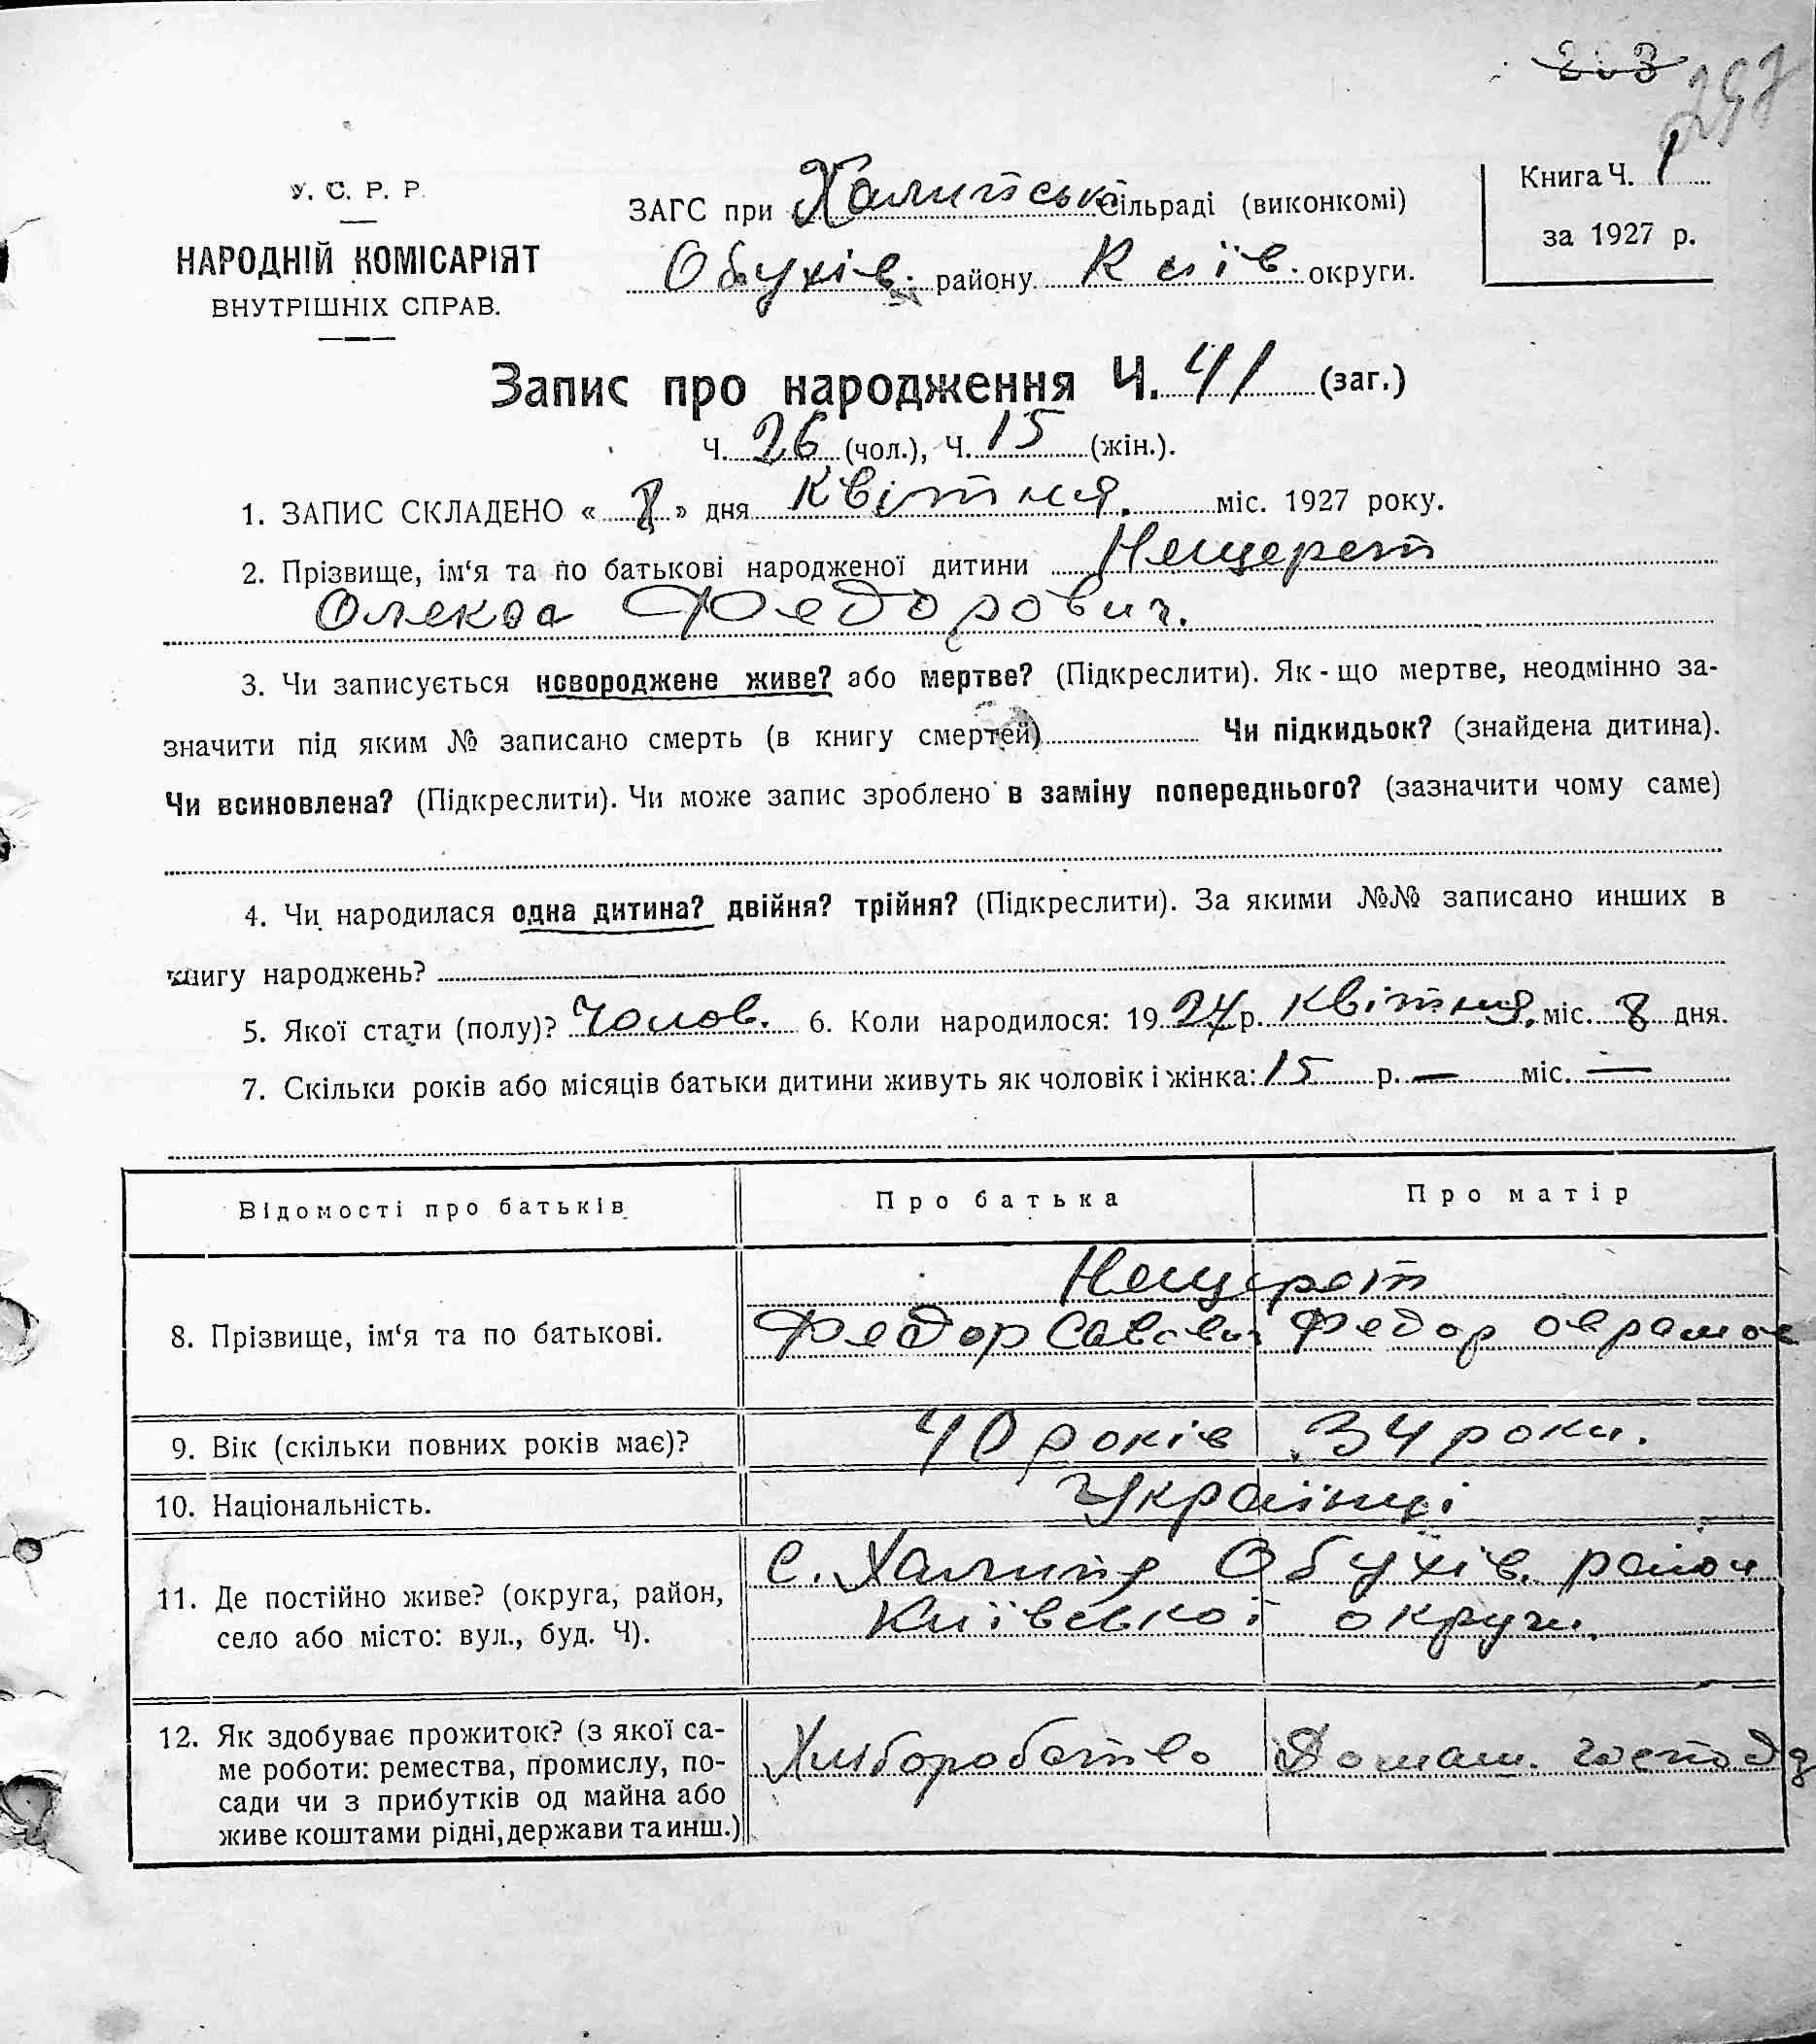 203
297
У. С. Р. Р.
НАРОДНІЙ КОМІСАРІЯТ
ВНУТРІШНІХ СПРАВ.
ЗАГС при Халипськ сільраді (виконкомі)
Обухів. району Київ. округи.
Книга Ч. 1
за 1927 р.
Запис про народження Ч. 41 (заг.)
Ч. 26 (чол.), Ч. 15 (жін.).
1. ЗАПИС СКЛАДЕНО « 8 » дня Квітня. міс. 1927 року.
2. Прізвище, ім‘я та по батькові народженої дитини Нещерет
Олекса Федорович.
3. Чи записується новороджене живе? або мертве? (Підкреслити). Як-що мертве, неодмінно за-
значити під яким № записано смерть (в книгу смертей) Чи підкидьок? (знайдена дитина).
Чи всиновлена? (Підкреслити). Чи може запис зроблено в заміну попереднього? (зазначити чому саме)
4. Чи народилася одна дитина? двійня? трійня? (Підкреслити). За якими №№ записано инших в
книгу народжень?
5. Якої стати (полу)? Чолов. 6. Коли народилося: 1927 р. Квітня. міс. 8 дня.
7. Скільки років або місяців батьки дитини живуть як чоловік і жінка: 15 р. — міс. —
Відомості про батьків Про батька Про матір
Нещерет
8. Прізвище, ім‘я та по батькові. Федор Савович Федор оврамов
9. Вік (скільки повних років має)? 40 років 34 роки.
10. Національність. Українці
11. Де постійно живе? (округа, район, с. Халипя Обухів. район
село або місто: вул., буд. Ч). Київської округи.
12. Як здобуває прожиток? (з якої са-
ме роботи: ремества, промислу, по- Хлиборобство Домаш. господ
сади чи з прибутків од майна або
живе коштами рідні, держави та инш.)